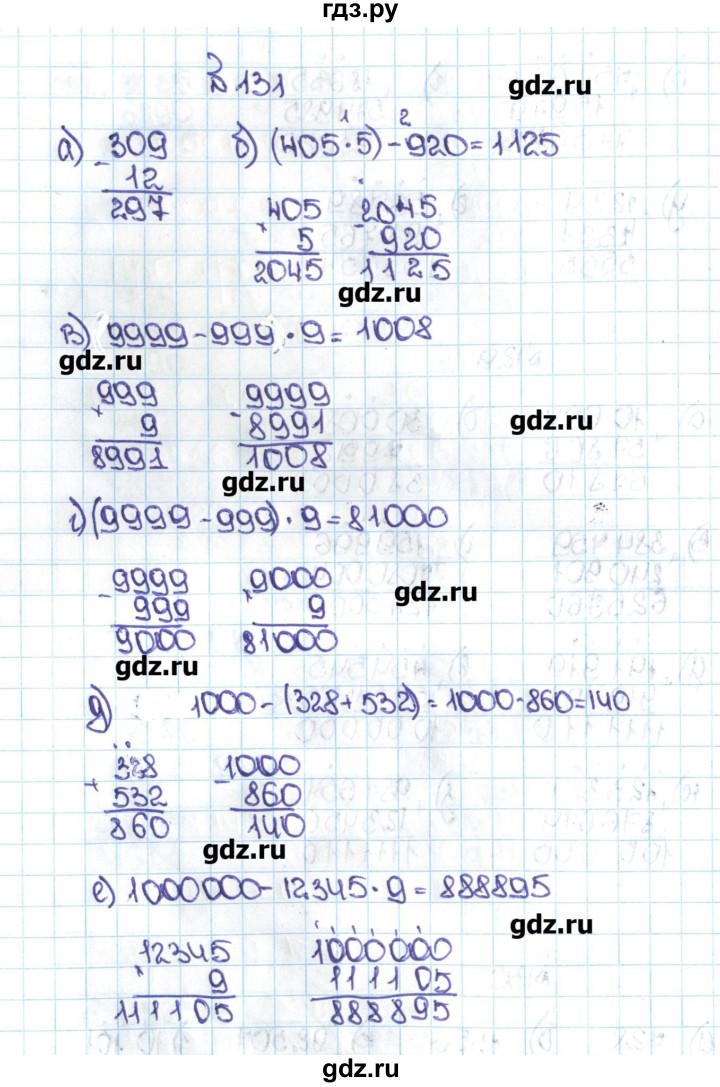 гдз.ру
№131
gdz.ru
1 2
а) 309 б) (405·5)-920=1125
- 12
297
405 2045
× 5 - 920
2045 1125
gdz.ru
в) 9999-999·9=1008
gdz.ru
999 9999
× 9 - 8991
8991 1008
gdz.ru
gdz.ru
г) (9999-999)·9=81000
9999 9000
- 999 × 9
9000 81000
gdz.ru
gdz.ru
д) 1000-(328+532)=1000-860=140
328 1000
+ 532 - 860
860 140
gdz.ru
е) 1000000-12345·9=888895
gdz.ru
12345 1000000
× 9 111105
111105 888895
gdz.ru